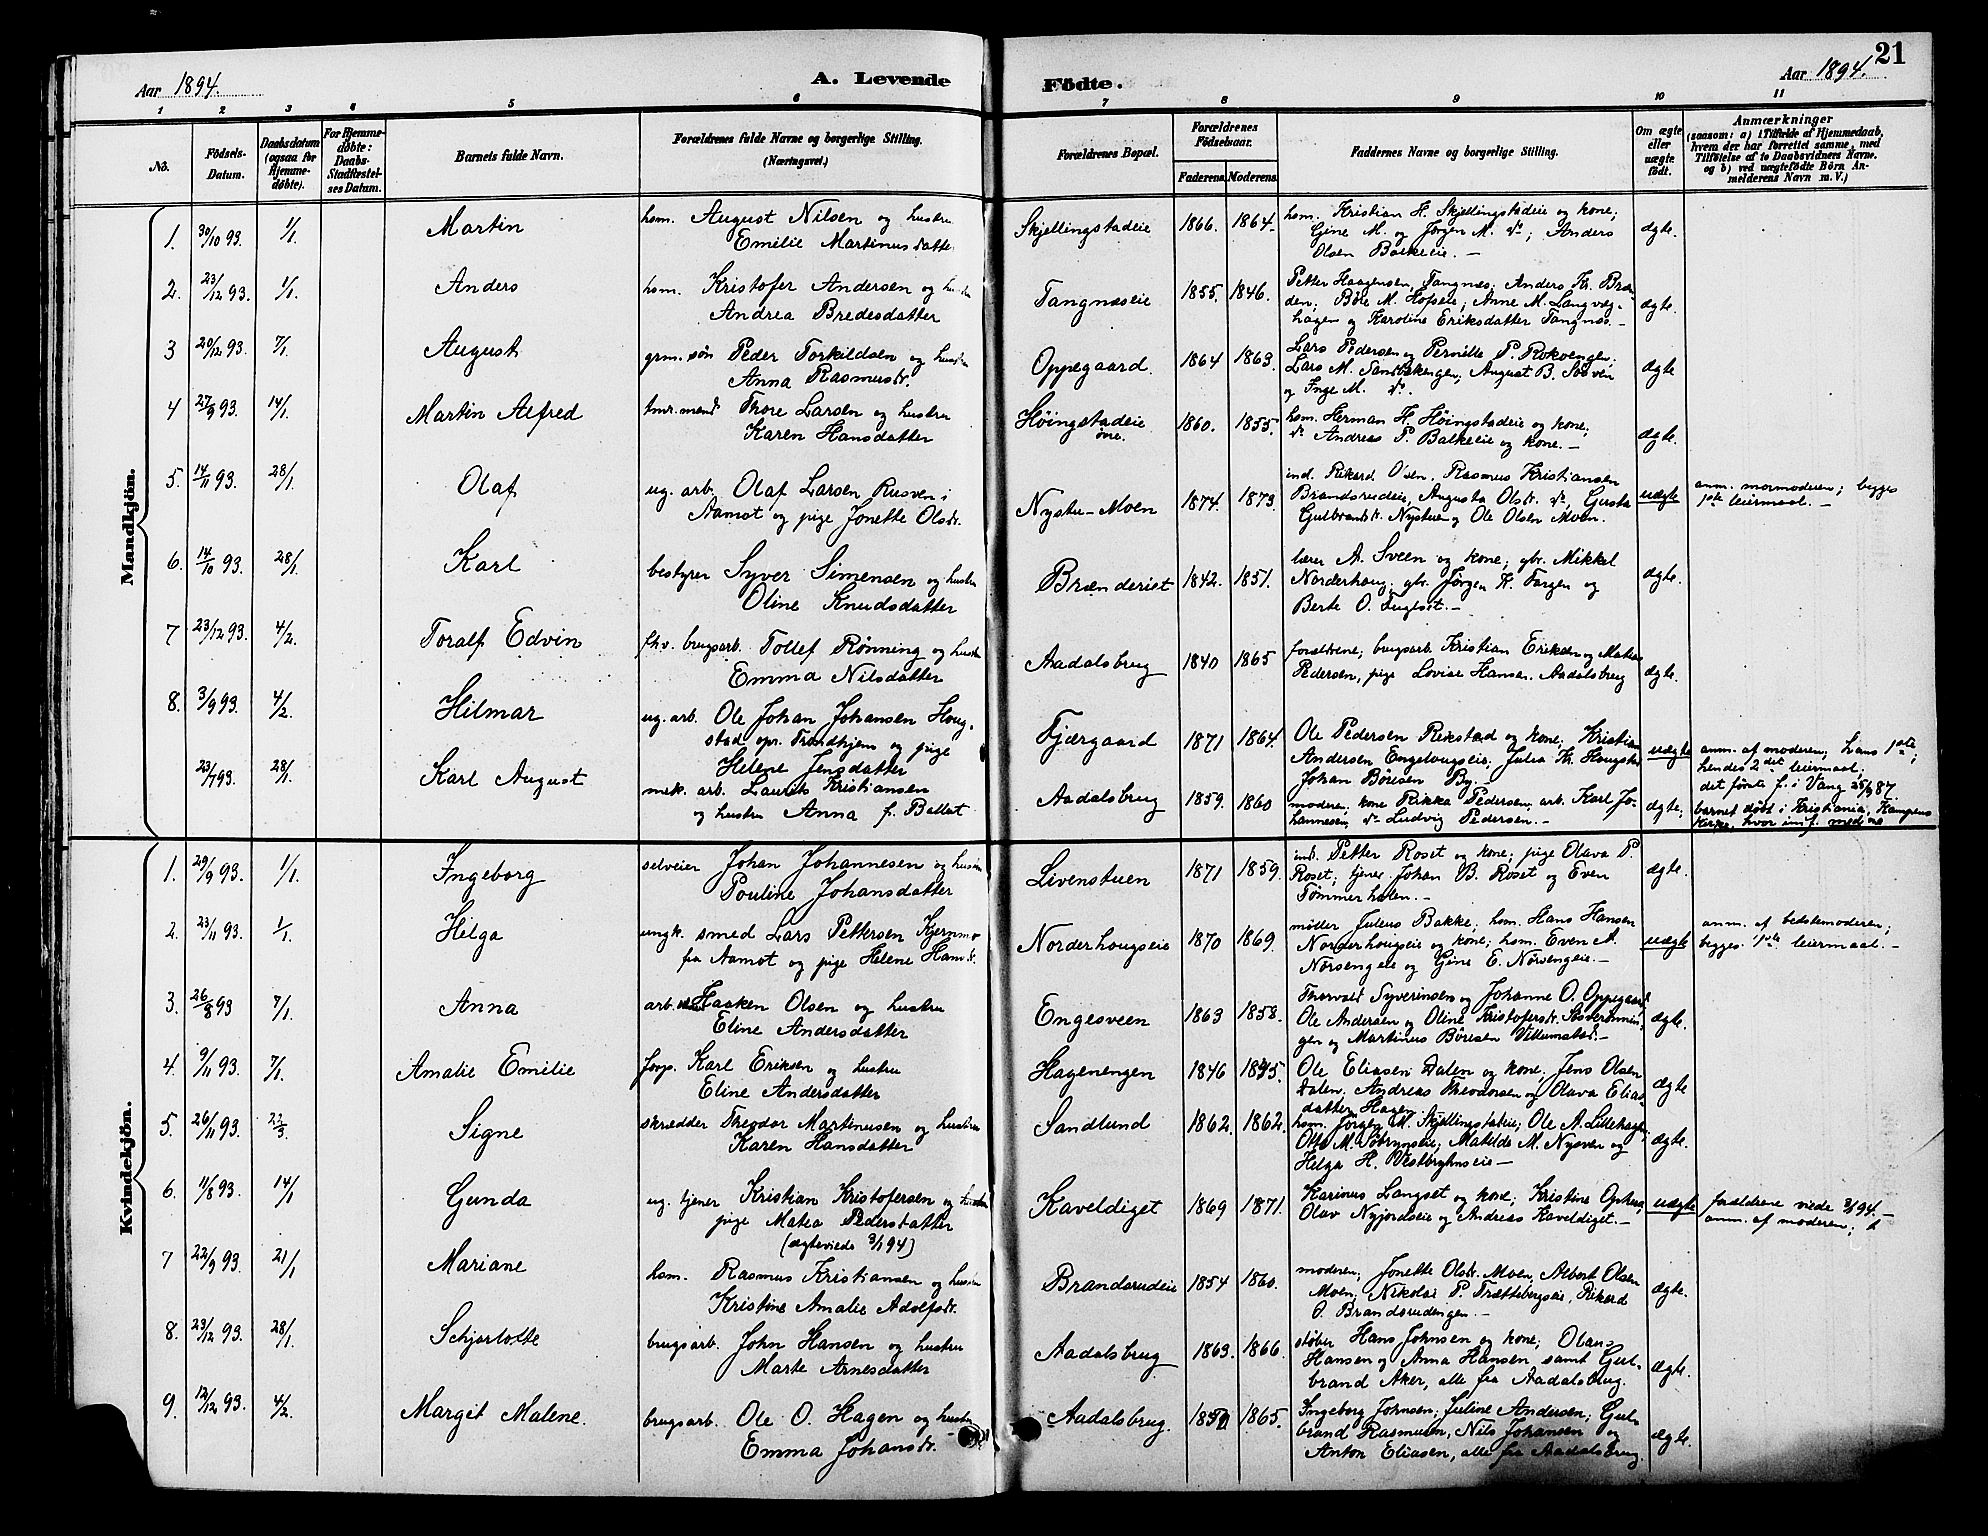 21
Aar 1894.
A. Levende
Födte.
Aar 1894.
1 2 3 4 5 6 7 8 9 10 11
No.
Födsels-
Datum.
Daabsdatum
(ogsaa for
Hjemme-
døbte).
For Hjemme-
døbte:
Daabs-
Stadfæstel-
ses Datum.
Barnets fulde Navn.
Forældrenes fulde Navne og borgerlige Stilling.
(Næringsvei.)
Forældrenes Bopæl.
Forældrenes
Födselsaar.
Faderens. Moderens.
Faddernes Navne og borgerlige Stilling.
Om ægte
eller
uægte
født.
Anmærkninger
(saasom: a) i Tilfælde af Hjemmedaab,
hvem der har forrettet samme, med
Tilföielse af to Daabsvidners Navne.
og b) ved uægtefödte Börn An-
melderens Navn m. V.)
Mandkjön.
1. 30/10 93. 1/1. Martin
hsm. August Nilsen og hustru
Emilie Martinusdatter
Skjellingstadeie 1866. 1864.
hsm. Kristian H. Skjellingstadeie og kone;
Gine M. og Jørgen M. do; Anders
Olsen Balkeeie. -
ægte.
2. 23/12 93. 1/1. Anders
hsm. Kristofer Andersen og hustru
Andrea Bredesdatter
Tangnæseie 1855. 1846.
Petter Haagensen, Tangnæs; Anders Kr. Bræn-
den; Böle M. Hofseie; Anne M. Langvæg-
hagen og Karoline Eriksdatter Tangnæs. -
ægte.
3 20/12 93. 7/1. August
grm. søn Peder Torkildsen og hustru
Anna Rasmusdr.
Oppegaard. 1864 1863.
Lars Pedersen og Pernille P. Rokvengen;
Lars M. Sandbækengen; August B.
og Inge M. do.
ægte
4 27/9 93. 14/1. Martin Alfred
tmr.mand Thore Larsen og hustru
Karen Hansdatter
Høingstadeie
øne. 1860. 1855.
hsm. Herman H. Høingstadeie og kone;
do Andreas P. Balkeeie og kone. -
ægte.
5. 14/11 93. 28/1. Olaf
ug. arb. Olaf Larsen Rusven i
Aamot og pige Jonette Olsdr.
Nystu-Moen 1874. 1873.
ind. Rikard Olsen, Rasmus Kristiansen
Brandsrudeie, Augusta Olsdr. do, Gusta
Gulbrandsdr. Nystuen og Ole Olsen Moen.
uægte
anm. mormoderen; begges
1ste leiermaal. -
6. 14/10 93. 28/1. Karl
bestyrer Syver Simensen og hustru
Oline Knudsdatter
Brænderiet 1842. 1851.
lærer A. Sveen og kone; gbr. Mikkel
Norderhoug; gbr. Jørgen K. Fargen og
Berte O. Fugleset. -
ægte.
7 23/12 93. 4/2. Toralf Edvin
fhv. brugsarb. Tollef Rønning og hustru
Emma Nilsdatter
Aadalsbrug 1840 1865
forældrene; brugsarb. Kristian Eriksen og Matias
Pedersen, pige Lovise Hansen, Aadalsbrug
ægte.
8. 3/9 93. 4/2. Hilmar
ug. arb. Ole Johan Johansen Houg-
stad opr. Trondhjem og pige
Helene Jensdatter
Fjærgaard 1871 1864.
Ole Pedersen Rekstad og kone; Kristian
Andersen Engelaugseie; Julia Kr. Hougstad
Johan Böresen By.
uægte
anm. af moderen; hans 1ste;
hendes 2det leiermaal;
det første f. i Vang 25/9 87
23/7 93. 28/1. Karl August
mek. arb. Laurits Kristiansen
og hustru Anna f. Ballat
Aadalsbrug 1859. 1860
moderen; kone Rikka Pedersen, arb. Karl Jo-
hannesen, do Ludvig Pedersen. -
ægte;
barnet døbt i Kristiania, Kampens
Kirke, hvor indf. medina
Kvindekjön.
1. 29/9 93. 1/1. Ingeborg
selveier Johan Johannesen og hustru
Pouline Johansdatter
Livenstuen 1871 1859.
ind. Petter Roset og kone; pige Olava P.
Roset; tjener Johan B. Roset og Even
Tømmerholen. -
ægte.
2. 23/11 93. 1/1. Helga
ungk. smed Lars Pettersen Kjernmo
fra Aamot og pige Helene Hansdr.
Norderhougseie 1870 1869.
møller Julius Bakke; hsm. Hans Hansen
Norderhougseie og kone; hsm. Even A.
Nørsengeie og Gine E. Nørsengeie. -
uægte
anm. af bedstemoderen;
begges 1ste leiermaal. -
3. 26/8 93 7/1. Anna
arb. Haaken Olsen og hustru
Eline Andersdatter
Engesveen 1863 1858.
Thorvald Syverinsen og Johanne O. Oppegaard
Ole Andersen og Oline Kristofersdr.
gen og Martinus Böresen Villumstad. -
ægte.
4. 9/11 93. 7/1. Amalie Emilie
forp. Karl Eriksen og hustru
Eline Andersdatter
Hagenengen 1846 1855.
Ole Eliasen Dalen og kone; Jens Olsen
Dalen, Andreas Theodorsen og Olava Elias-
datter Hagen.
ægte
5. 26/11 93. 22/3. Signe
skrædder Theodor Martinusen og hustru
Karen Hansdatter
Sandlund 1862. 1862.
hsm. Jørgen M. Skjellingstadeie; Ole A. Lillehagen,
Otto M. Søbrynseie; Matilde M. Nysven og
Helga H. Vestbrynseie -
ægte.
6. 11/8 93. 14/1 Gunda
ug. tjener Kristian Kristofersen og hustru
pige Matea Pedersdatter
(ægteviede 3/1 94)
Kaveldiget 1869 1871.
Karinus Langset og kone; Kristine Ophus,
Olav Nyjordseie og Andreas Kaveldiget. -
uægte
forældrene viede 3/1 94. -
anm. af moderen;
7 22/9 93. 21/1 Mariane
hsm. Rasmus Kristiansen og hustru
Kristine Amalie Adolfsdr.
Brandsrudeie 1854 1860.
moderen; Jonette Olsdr. Moen, Albert Olsen
Moen; Nikolai P. Trættebergseie, Rikard
O. Brandsrudengen. -
ægte.
8. 23/12 93. 28/1. Schjarlotte
brugsarb. John Hansen og hustru
Marte Arnesdatter
Aadalsbrug 1863. 1866.
støber Hans Johnsen og kone; Olaus
Hansen og Anna Hansen samt Gul-
brand Aker, alle fra Aadalsbrug.
ægte.
9. 12/12 93. 4/2. Margit Malene.
brugsarb. Ole O. Hagen og hustru
Emma Johansdr.
Aadalsbrug. 1865.
Ingeborg Johnsen; Juline Andersen; Gul-
brand Rasmusen, Nils Johansen og
Anton Eliasen, alle fra Aadalsbrug.
ægte.